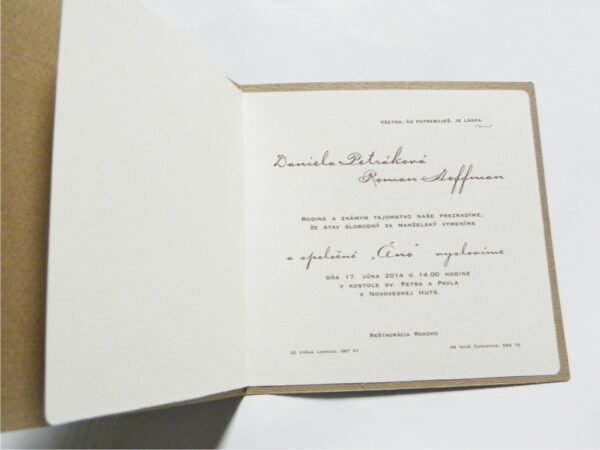 VŠETKO, ČO POTREBUJEŠ, JE LÁSKA
Daniela Petráková
Roman Hoffman
RODINE A ZNÁMYM TAJOMSTVO NAŠE PREZRADÍME,
ŽE STAV SLOBODNÝ ZA MANŽELSKÝ VYMENÍME
a spoločné „Áno" vyslovíme
DŇA 17. JÚNA 2014 O 14.00 HODINE
V KOSTOLE SV. PETRA A PAVLA
V NOVOVESKEJ HUTE.
REŠTAURÁCIA ROKOKO